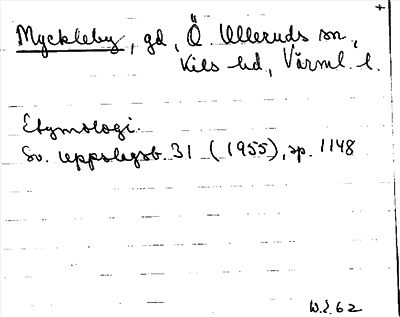 +
Myckleby, gd, Ö. Ulleruds sn,
Kils hd, Värml. l.
Etymologi.
Sv. uppslagsb. 31 (1955), sp. 1148
W.E. 62